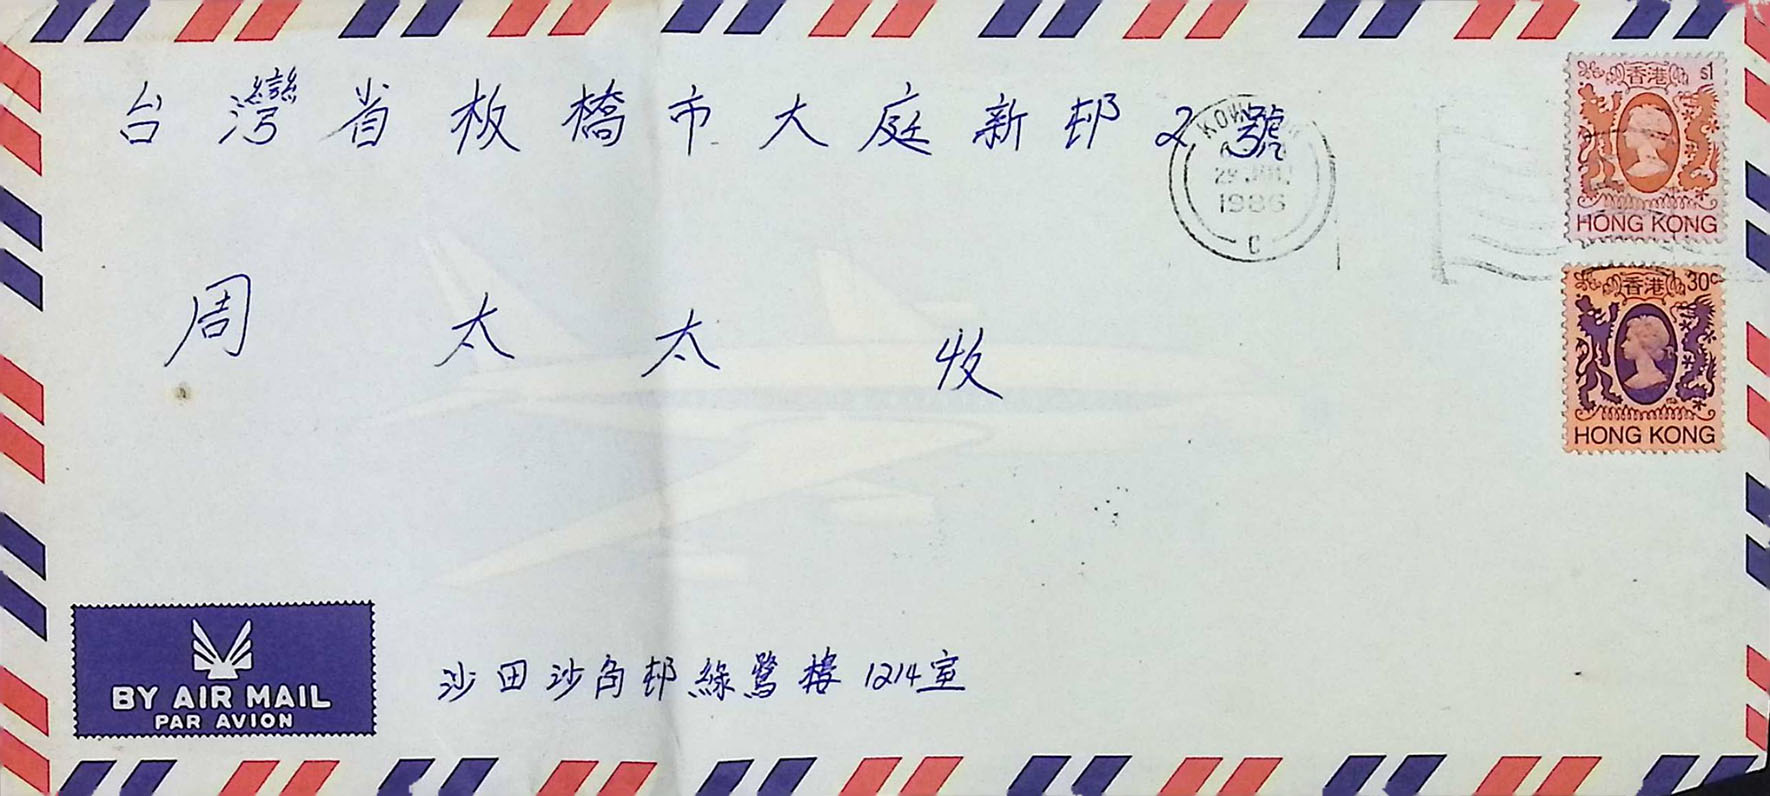 台灣省板橋市大庭新邨2號
KOWLOON
1986
C
香港 $1
HONG KONG
周太太收
香港 30c
HONG KONG
沙田沙角邨綠鷺樓1214室
BY AIR MAIL
PAR AVION